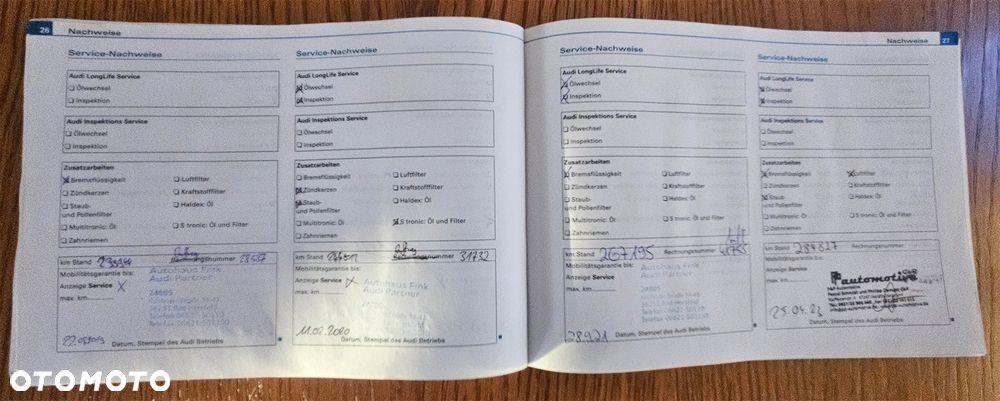 26 Nachweise
Service-Nachweise
Audi LongLife Service
Ölwechsel
Inspektion
Audi Inspektions Service
Ölwechsel
Inspektion
Zusatzarbeiten
Bremsflüssigkeit
Luftfilter
Zündkerzen
Kraftstofffilter
Staub-
und Pollenfilter
Haldex: Öl
Multitronic: Öl
S tronic: Öl und Filter
Zahnriemen
km Stand
Mobilitätsgarantie bis:
Anzeige Service X
max. km
Autohaus Fink
Audi Partner
Datum, Stempel des Audi Betriebs
Service-Nachweise
Audi LongLife Service
Ölwechsel
Inspektion
Audi Inspektions Service
Ölwechsel
Inspektion
Zusatzarbeiten
Bremsflüssigkeit
Luftfilter
Zündkerzen
Kraftstofffilter
Staub-
und Pollenfilter
Haldex: Öl
Multitronic: Öl
S tronic: Öl und Filter
Zahnriemen
km Stand
31732
Mobilitätsgarantie bis:
Anzeige Service X
max. km
Autohaus Fink
Audi Partner
11.02.2020
Datum, Stempel des Audi Betriebs
Nachweise 27
Service-Nachweise
Audi LongLife Service
Ölwechsel
Inspektion
Audi Inspektions Service
Ölwechsel
Inspektion
Zusatzarbeiten
Bremsflüssigkeit
Luftfilter
Zündkerzen
Kraftstofffilter
Staub-
und Pollenfilter
Haldex: Öl
Multitronic: Öl
S tronic: Öl und Filter
Zahnriemen
km Stand 267195 Rechnungsnummer
Mobilitätsgarantie bis:
Anzeige Service
max. km
Autohaus Fink
Audi Partner
28.9.21
Datum, Stempel des Audi Betriebs
Service-Nachweise
Audi LongLife Service
Ölwechsel
Inspektion
Audi Inspektions Service
Ölwechsel
Inspektion
Zusatzarbeiten
Bremsflüssigkeit
Luftfilter
Zündkerzen
Kraftstofffilter
Staub-
und Pollenfilter
Haldex: Öl
Multitronic: Öl
S tronic: Öl und Filter
Zahnriemen
km Stand 284827 Rechnungsnummer
Mobilitätsgarantie bis:
Anzeige Service
max. km
automotive
25.04.23
Datum, Stempel des Audi Betriebs
OTOMOTO